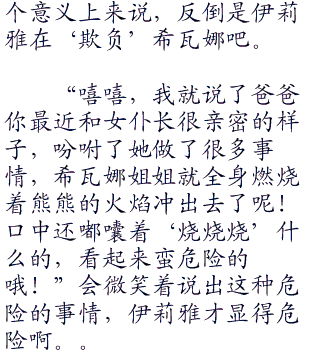 个意义上来说，反倒是伊莉
雅在‘欺负’希瓦娜吧。
“嘻嘻，我就说了爸爸
你最近和女仆长很亲密的样
子，吩咐了她做了很多事
情，希瓦娜姐姐就全身燃烧
着熊熊的火焰冲出去了呢！
口中还嘟囔着‘烧烧烧’什
么的，看起来蛮危险的
哦！”会微笑着说出这种危
险的事情，伊莉雅才显得危
险啊。。